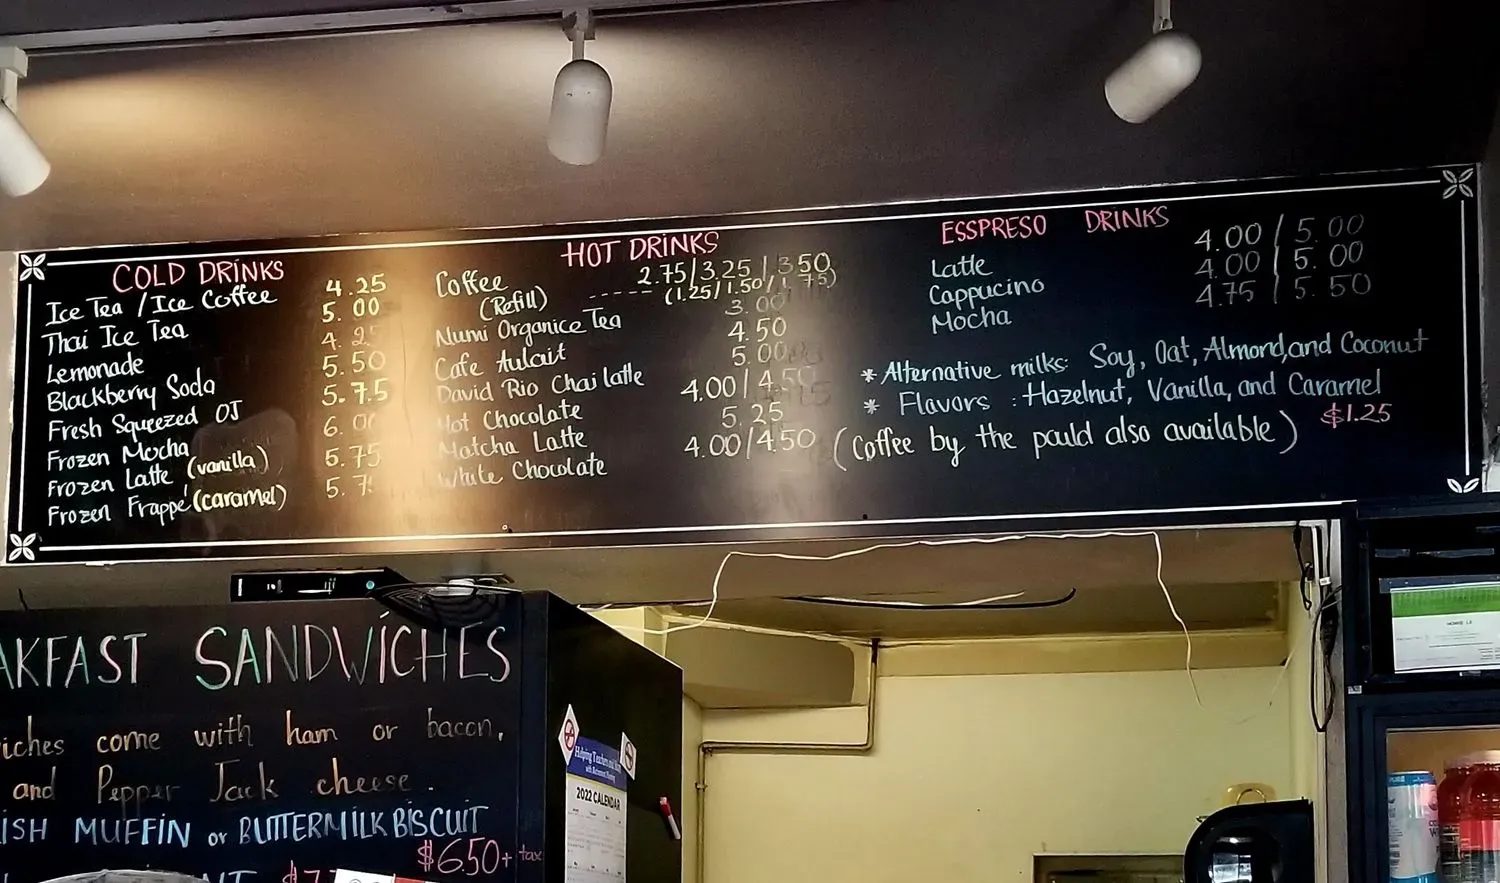 COLD DRINKS
Ice Tea / Ice Coffee 4.25
Thai Ice Tea 5.00
Lemonade 4.25
Blackberry Soda 5.50
Fresh Squeezed OJ 5.75
Frozen Mocha 6.00
Frozen Latte (vanilla) 5.75
Frozen Frappé (caramel) 5.7
HOT DRINKS
Coffee 2.75/3.25/3.50
(Refill) ----- (1.25/1.50/1.75)
Numi Organice Tea 3.00
Cafe Aulait 4.50
David Rio Chai latte 5.00
Hot Chocolate 4.00/4.50
Matcha Latte 5.25
White Chocolate 4.00/4.50
ESSPRESO DRINKS
Latte 4.00/5.00
Cappucino 4.00/5.00
Mocha 4.75/5.50
* Alternative milks: Soy, Oat, Almond, and Coconut
* Flavors : Hazelnut, Vanilla, and Caramel
$1.25
(Coffee by the pould also available)
AKFAST SANDWICHES
iches come with ham or bacon,
and Pepper Jack cheese.
ISH MUFFIN or BUTTERMILK BISCUIT
$6.50 + tax
NT $7
2022 CALENDAR